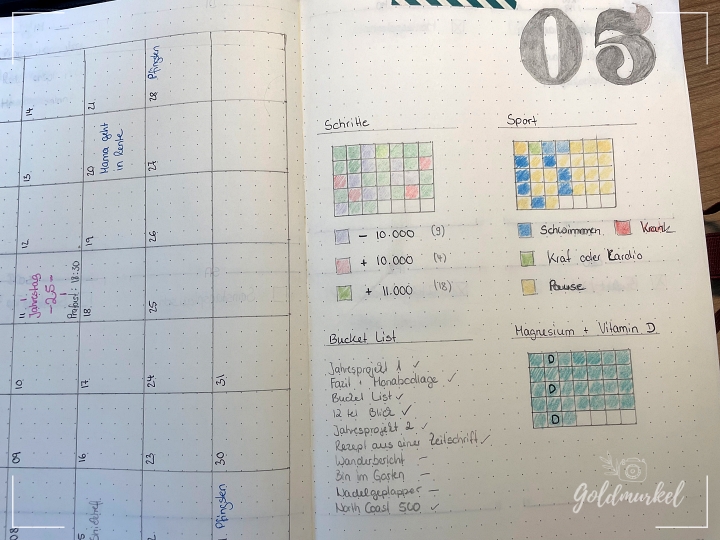 05
14
21
28 Pfingsten
13
20 Mama geht
in Rente
27
12
19
26
11 Jahrestag
-25-
18
25
10
17
24
31
09
16
23
30
08
Pfingsten
Schritte
- 10.000 (9)
+ 10.000 (4)
+ 11.000 (18)
Sport
Schwimmen
Krank
Kraft oder Cardio
Pause
Bucket List
Jahresprojekt 1 ✓
Fazit + Monatscollage ✓
Bucket List ✓
12 tel Blick ✓
Jahresprojekt 2 ✓
Rezept aus einer Zeitschrift ✓
Wanderbericht –
Bin im Garten –
Nadelgeplapper –
North Coast 500 ✓
Magnesium + Vitamin D
D
D
D
Goldmurkel